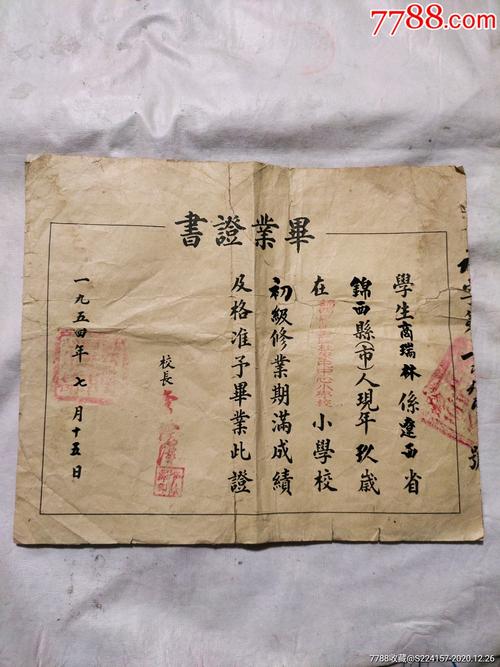 7788.com
畢業證書
學生商瑞林係遼西省
錦西縣(市)人現年玖歲
在 中心小學校 小學校
初級修業期滿成績
及格准予畢業此證
校長
一九五四年七月十五日
號
7788收藏@S224157-2020.12.26